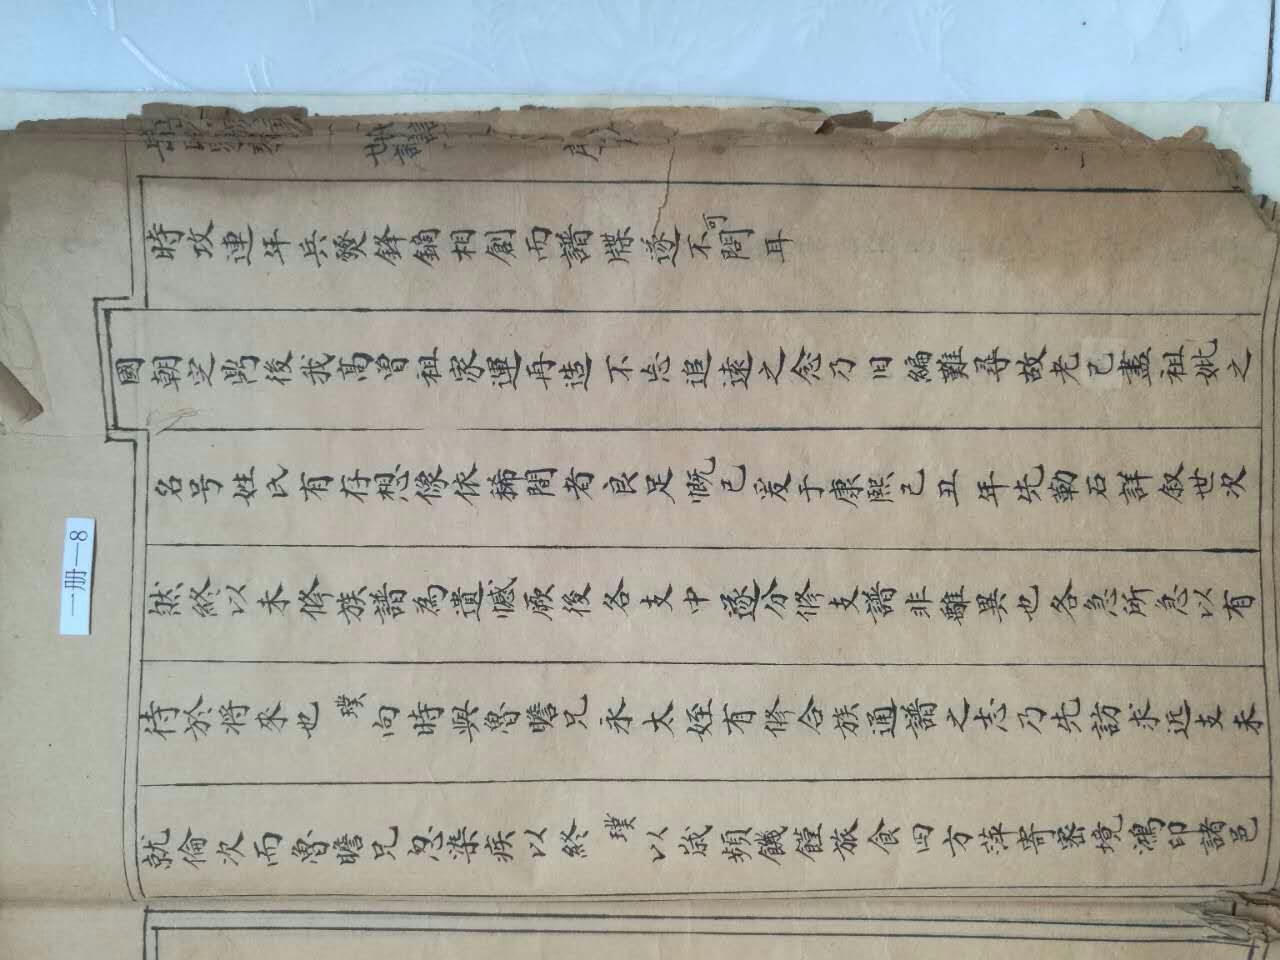 世譜 序
時攻連年兵燹鋒鏑相創而譜牒遂不可問耳
國朝定鼎後我高曾祖家運再造不忘追遠之念乃旧編難尋故老已盡祖妣之
名号姓氏有存想像依稀間者良足慨已爰于康熙己丑年先勒石詳叙世次
然終以未修族譜為遺憾厥後各支中遂分修支譜非離異也各急所急以有
待於將來也璞向時與魯瞻兄永太姪有修合族通譜之志乃先訪求近支未
就倫次而魯瞻兄忽染疾以終璞以歲頻饑饉旅食四方萍寄密境鴻印諸邑
一册—8